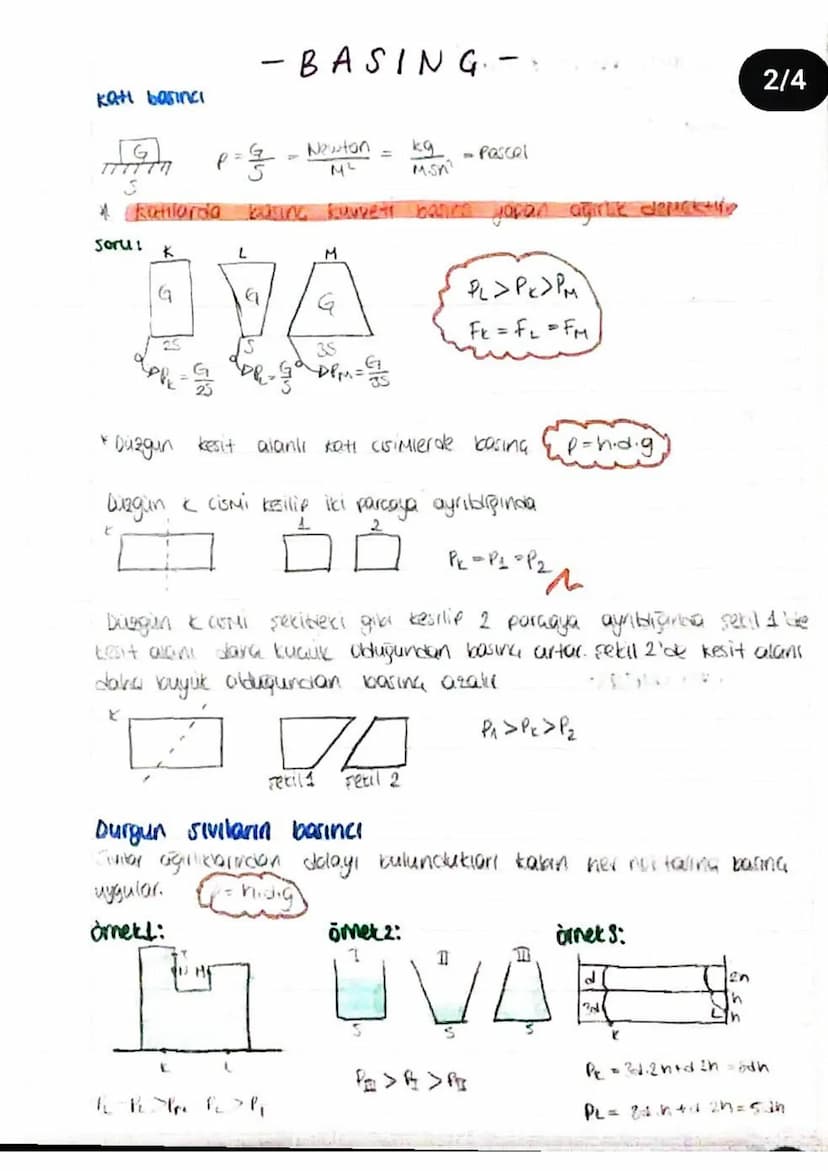 - BASINÇ -
2/4
Katı basıncı
G
S
P = G/S = Newton/M² = kg/M.sn² = Pascal
* Katılarda basınç kuvveti basınç yapan ağırlık demektir
Soru:
K L M
G G G
2S S 3S
PK = G/2S PL = G/S PM = G/3S
PL > PK > PM
FK = FL = FM
* Düzgün kesit alanlı katı cisimlerde basınç P = h.d.g
Düzgün K cismi kesilip iki parçaya ayrıldığında
K 1 2
PK = P1 = P2
Düzgün K cismi şekildeki gibi kesilip 2 parçaya ayrıldığında şekil 1'de
kesit alanı daha küçük olduğundan basınç artar. Şekil 2'de kesit alanı
daha büyük olduğundan basınç azalır
K
şekil 1 şekil 2
P1 > PK > P2
Durgun sıvıların basıncı
Sıvılar ağırlıklarından dolayı bulundukları kabın her noktasına basınç
uygular. P = h.d.g
örnek1: örnek2: örnek3:
I II III
S S S
d 2h
h
L h
K
K L
PIII > PI > PII